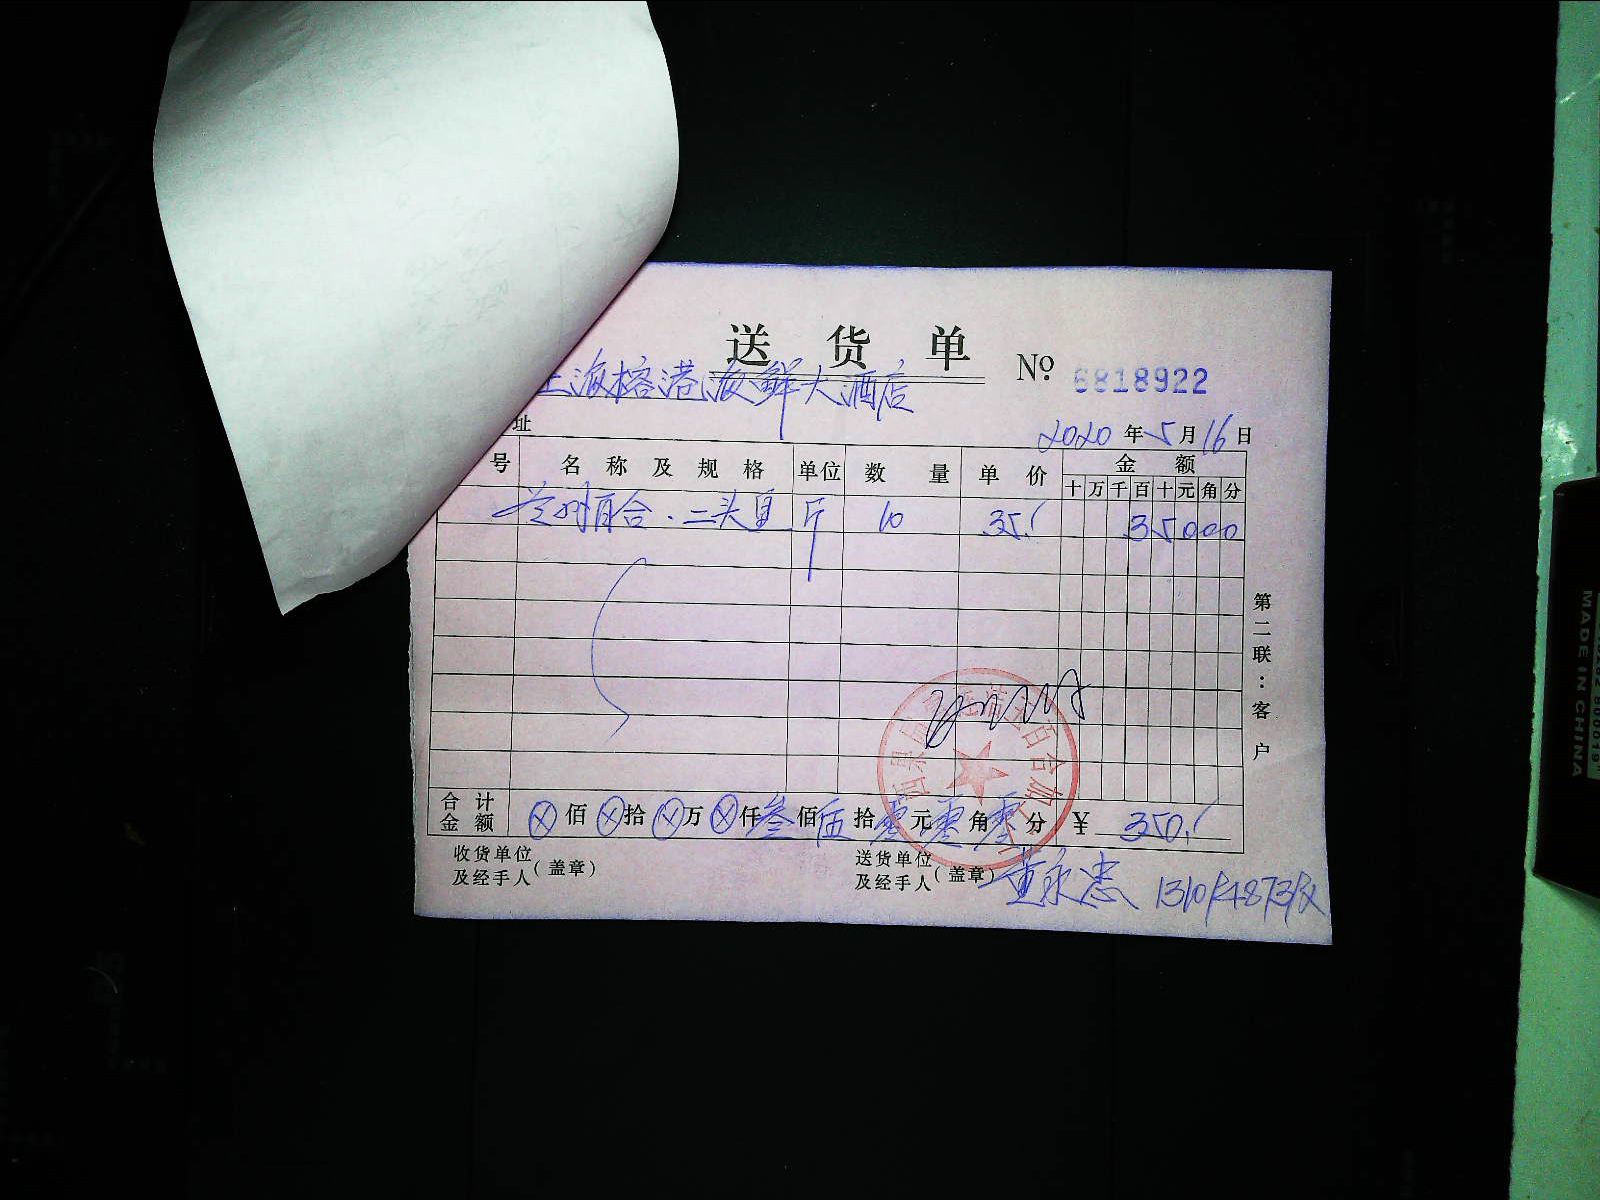 送货单
No. 6818922
上海榕港海鲜大酒店
址
2020年5月16日
号 名称及规格 单位 数量 单价 金额
十万千百十元角分
兰州百合.二头 斤 10 35. 35000
第二联：客户
合计金额 ⊗佰⊗拾⊗万⊗仟叁佰伍拾零元零角零分 ¥ 350.
收货单位及经手人(盖章)
送货单位及经手人(盖章) 黄永忠
MADE IN CHINA